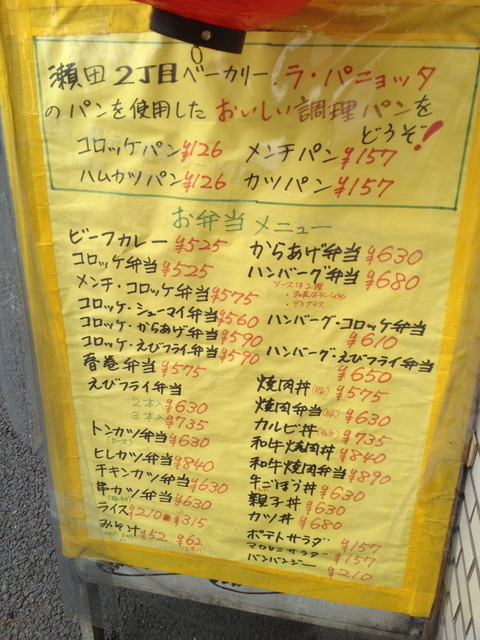 瀬田2丁目ベーカリー、ラ・パニョッタ
のパンを使用したおいしい調理パンを
どうぞ!
コロッケパン¥126 メンチパン¥157
ハムカツパン¥126 カツパン¥157
お弁当メニュー
ビーフカレー ¥525
コロッケ弁当 ¥525
メンチ・コロッケ弁当¥575
コロッケ・シューマイ弁当¥560
コロッケ・からあげ弁当¥590
コロッケ・えびフライ弁当¥590
春巻弁当 ¥575
えびフライ弁当
2本入 ¥630
3本入 ¥735
トンカツ弁当 ¥630
(ロース)
ヒレカツ弁当 ¥840
チキンカツ弁当 ¥630
串カツ弁当 ¥630
ライス ¥210 ¥315
みそ汁 ¥52 ¥62
からあげ弁当 ¥630
ハンバーグ弁当 ¥680
ソースは2種
・デミグラス
ハンバーグ・コロッケ弁当
¥610
ハンバーグ・えびフライ弁当
¥650
焼肉丼 ¥575
焼肉弁当 ¥630
カルビ丼 ¥735
和牛焼肉丼 ¥840
和牛焼肉弁当 ¥890
牛ごぼう丼 ¥630
親子丼 ¥630
カツ丼 ¥680
ポテトサラダ ¥157
マカロニサラダ ¥157
バンバンジー ¥210